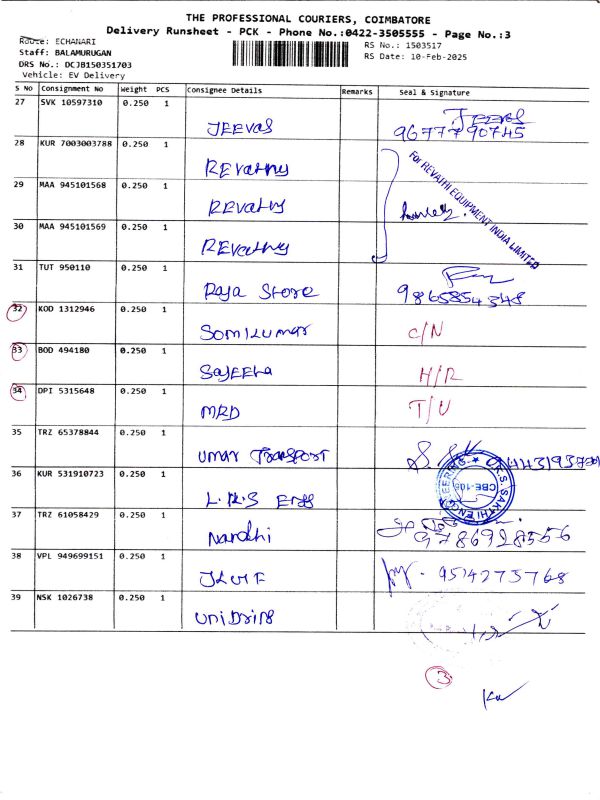 THE PROFESSIONAL COURIERS, COIMBATORE
Delivery Runsheet - PCK - Phone No.:0422-3505555 - Page No.:3
Route: ECHANARI
RS No.: 1503517
Staff: BALAMURUGAN
RS Date: 10-Feb-2025
DRS No.: DCJB150351703
Vehicle: EV Delivery
S No Consignment No Weight PCS Consignee Details Remarks Seal & Signature
27 SVK 10597310 0.250 1
JEEVAS Jeevas
9677790745
28 KUR 7003003788 0.250 1
REvathy
For REVATHI EQUIPMENT INDIA LIMITED
29 MAA 945101568 0.250 1
REvathy
30 MAA 945101569 0.250 1
REvathy
31 TUT 950110 0.250 1
Raja Store 9865854348
32 KOD 1312946 0.250 1
Somikumar C/N
33 BOD 494180 0.250 1
Sajeeha H/R
34 DPI 5315648 0.250 1
MRD T/U
35 TRZ 65378844 0.250 1
umar Transport
36 KUR 531910723 0.250 1
L.R.S Engg
S.SAKTHI ENGINEERING
CBE-105
37 TRZ 61058429 0.250 1
Nandhi 9786928556
38 VPL 949699151 0.250 1
9514275768
39 NSK 1026738 0.250 1
uniDring
3